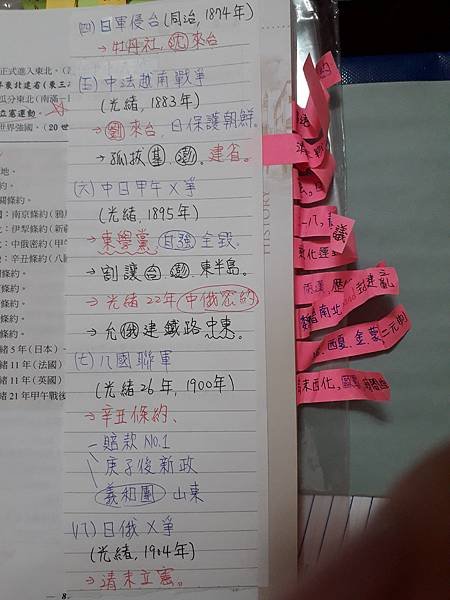 (四) 日軍侵台 (同治, 1874年)
→ 牡丹社, 沈來台
(五) 中法越南戰爭
(光緒, 1883年)
→ 劉來台, 日保護朝鮮.
→ 孤拔基, 澎. 建省。
(六) 中日甲午X爭
(光緒, 1895年)
→ 東學黨, 自強全毀
→ 割讓台, 澎, 東半島。
→ 光緒22年中俄密約
→ 允俄建鐵路中東。
(七) 八國聯軍
(光緒26年, 1900年)
→ 辛丑條約、
賠款 NO.1
庚子後新政
義和團 山東
(八) 日俄X爭
(光緒, 1904年)
→ 清末立憲。
正式進入東北。
立憲運動。
世界強國。(20世
條約。
：南京條約(鴉
：伊犁條約(新疆
：中俄密約(甲午
：辛丑條約(八
條約。
條約。
條約。
緒5年(日本)、
緒11年(法國)
緒11年(英國)
緒21年甲午戰後
8
HISTORY
約
議
南北
封建亂
西夏, 金, 蒙 二元
末西化,